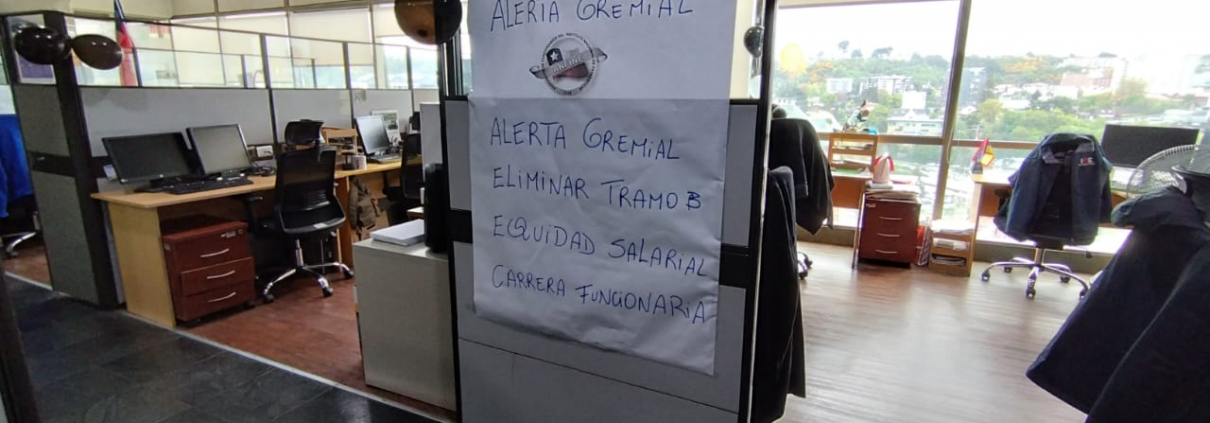 ALERTA GREMIAL
ALERTA GREMIAL
ELIMINAR TRAMO B
EQUIDAD SALARIAL
CARRERA FUNCIONARIA